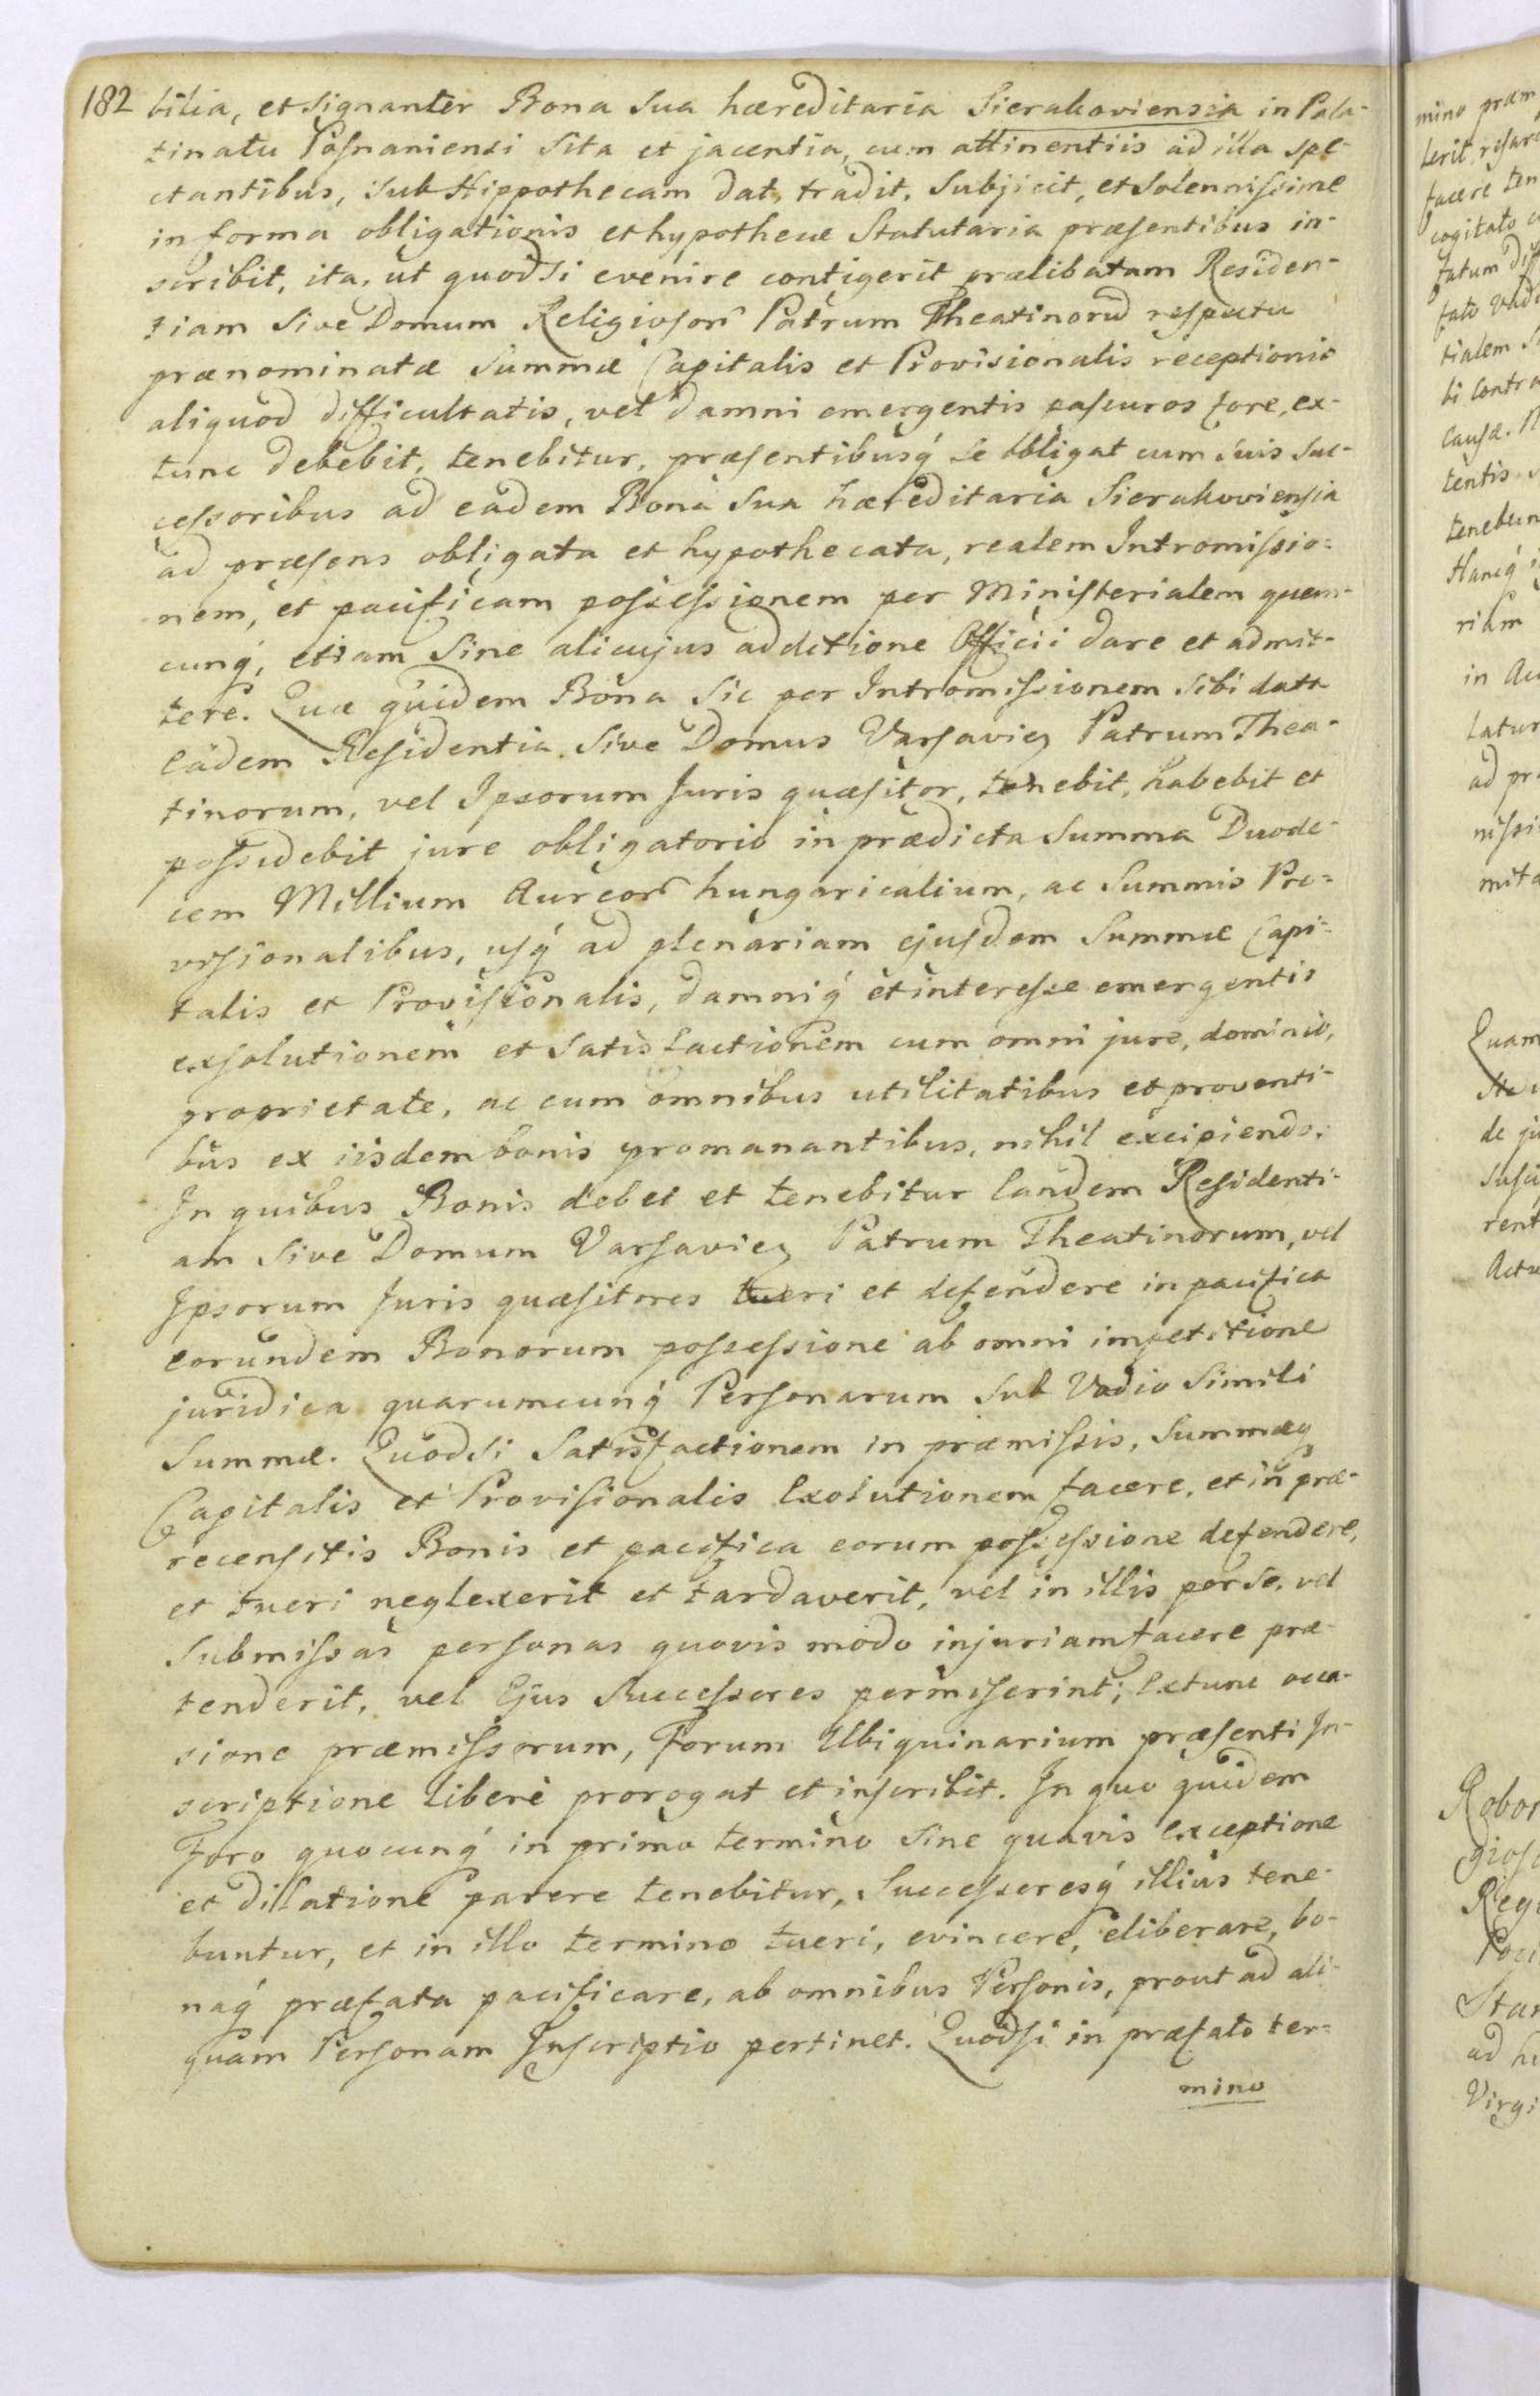 182 bilia, et signanter Bona sua hæreditaria Sierakoviensia in Pala-
tinatu Posnaniensi sita et jacentia, cum attinentiis ad illa spe-
ctantibus, sub Hippothecam dat, tradit, subjicit, et solennissime
in forma obligationis et hypothecæ Statutaria præsentibus in-
scribit, ita, ut quodsi evenire contigerit prælibatam Residen-
tiam sive Domum Religiosor Patrum Theatinorū respectu
prænominatæ Summæ Capitalis et Provisionalis receptionis
aliquod difficultatis, vel damni emergentis passuros fore, ex-
tunc debebit, tenebitur, præsentibusq́ se obligat cum suis suc-
cessoribus ad eadem Bona sua hæreditaria Sierakoviensia
ad præsens obligata et hypothecata, realem Intromissio=
nem, et pacificam possessionem per Ministerialem quem-
cunq́, etiam sine alicujus additione Officii dare et admit-
tere. Quæ quidem Bona sic per Intromissionem sibi data
eadem Residentia sive Domus Varsavien Patrum Thea-
tinorum, vel Ipsorum Juris quæsitor, tenebit, habebit et
possidebit jure obligatorio in prædicta Summa Duode-
cem Millium Aureor hungaricalium, ac Summis Pro=
visionalibus, usq́ ad plenariam ejusdem Summæ Capi-
talis et Provisionalis, damniq́ et interesse emergentis
exsolutionem et satisfactionem cum omni jure, dominio,
proprietate, ac cum omnibus utilitatibus et proventi-
bus ex iisdem bonis promanantibus, nihil excipiendo.
In quibus Bonis debet et tenebitur eandem Residenti-
am sive Domum Varsavien Patrum Theatinorum, vel
Ipsorum Juris quæsitores tueri et defendere in pacifica
eorundem Bonorum possessione ab omni impetitione
juridica quarumcunq́ Personarum sub Vadio simili
Summæ. Quodsi satisfactionem in præmissis, Summæq
Capitalis et Provisionalis Exolutionem facere, et in præ-
recensitis Bonis et pacifica eorum possessione defendere,
et tueri neglexerit et tardaverit, vel in illis per se, vel
submissas personas quovis modo injuriam facere præ-
tenderit, vel Ejus Successores permiserint; Extunc occa-
sione præmissorum, Forum Ubiquinarium præsenti In-
scriptione libere prorogat et inscribit. In quo quidem
Foro quocunq́ in primo termino sine quavis exceptione
et dillatione parere tenebitur, Successoresq́ illius tene-
buntur, et in illo termino tueri, evincere, eliberare, bo-
naq́ præfata pacificare, ab omnibus Personis, prout ad ali-
quam Personam Inscriptio pertinet. Quodsi in præfato ter=
mino
mino præm
terit, resarc
facere ten
cogitato
fatum
fato Vad
tialem
bi Contra
Causæ.
tentis
tenebun
Hancq́
riam
in Au
latur
ad pr
nissi
mita
Quam
de ju
susci
rent
Actu
Robor
gioso
Reg
Stan
ad h
Virgi